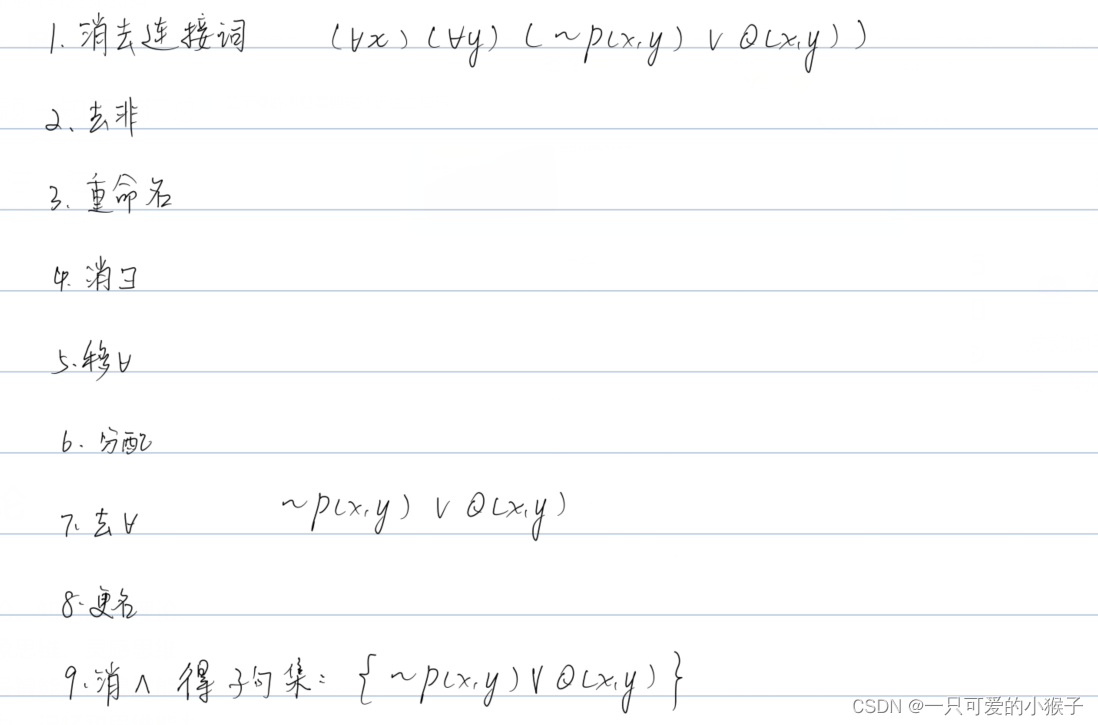 1. 消去连接词 (∀x)(∀y)(~P(x,y) ∨ Q(x,y))
2、去非
3. 重命名
4. 消∃
5. 移∀
6. 分配
7. 去∀ ~P(x,y) ∨ Q(x,y)
8. 更名
9. 消∧ 得子句集: {~P(x,y) ∨ Q(x,y)}
CSDN @一只可爱的小猴子